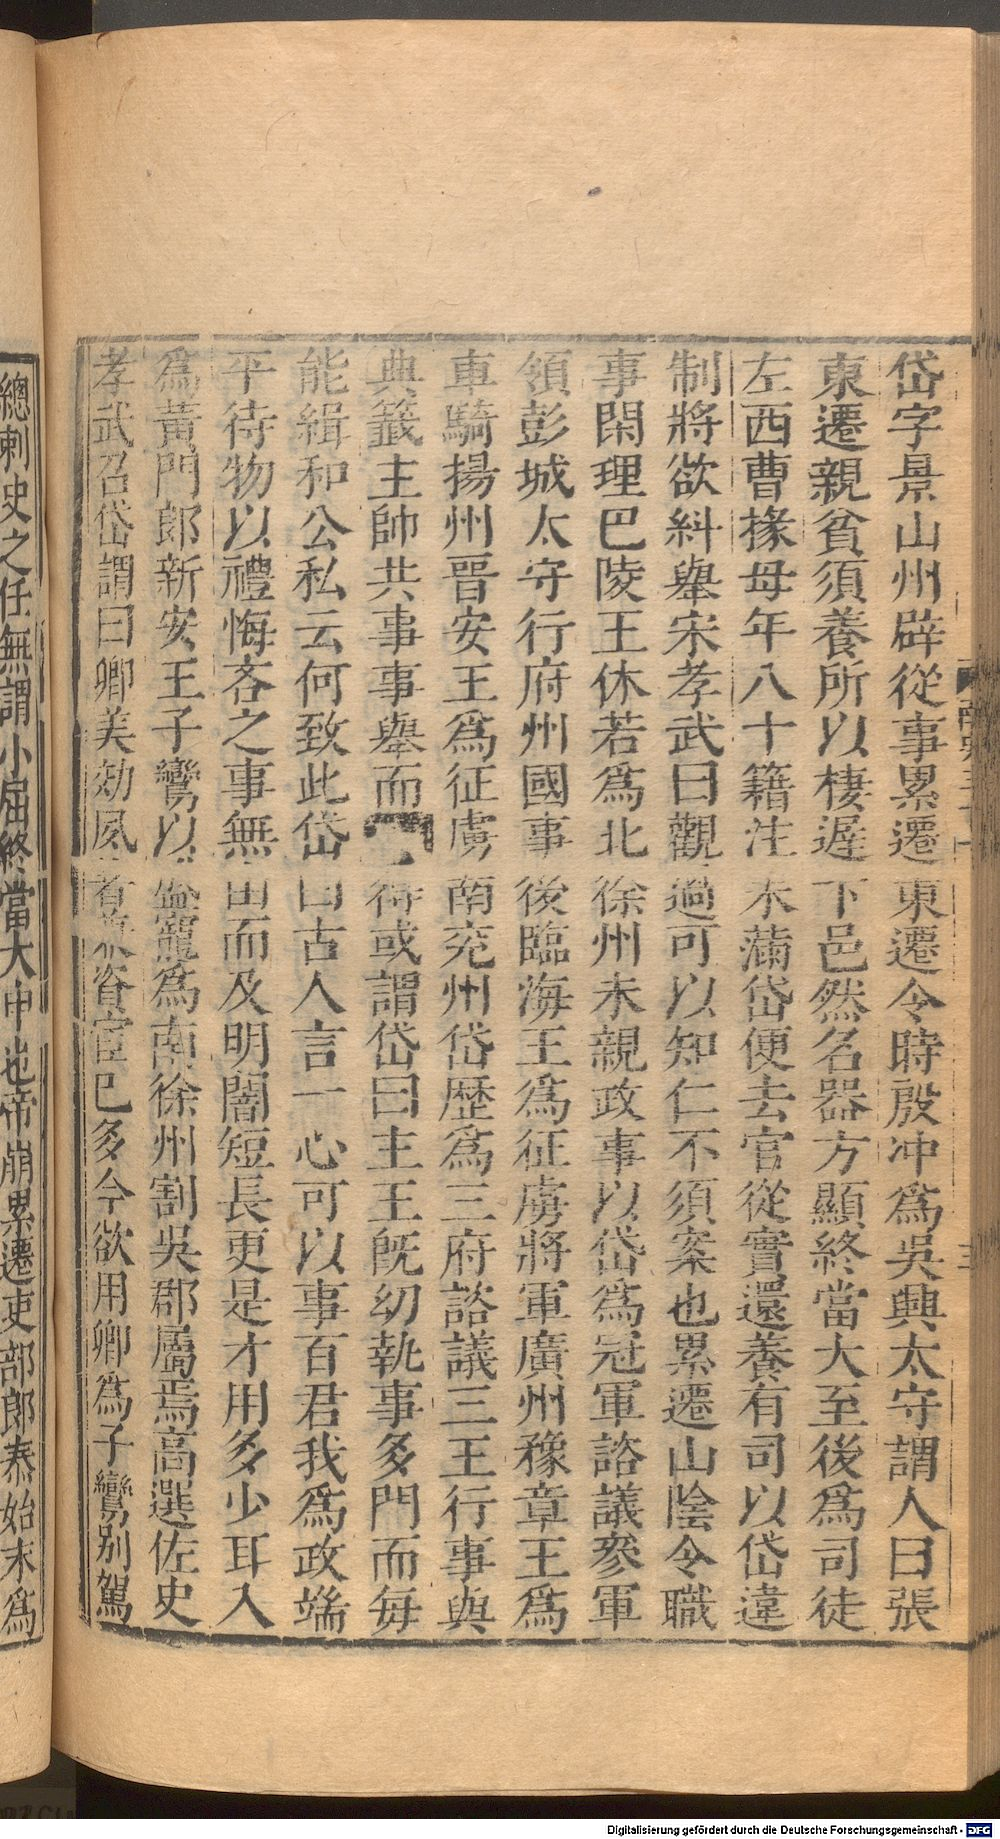 岱字景山州辟從事累遷東遷令時殷冲爲吳興太守謂人曰張
東遷親貧須養所以棲遲下邑然名器方顯終當大至後爲司徒
左西曹掾母年八十籍注未滿岱便去官從實還養有司以岱違
制將欲糾舉宋孝武曰觀過可以知仁不須案也累遷山陰令職
事閑理巴陵王休若爲北徐州未親政事以岱爲冠軍諮議參軍
領彭城太守行府州國事後臨海王爲征虜將軍廣州豫章王爲
車騎揚州晉安王爲征虜南兖州岱歷爲三府諮議三王行事與
典籤主帥共事事舉而得或謂岱曰主王旣幼執事多門而每
能緝和公私云何致此岱曰古人言一心可以事百君我爲政端
平待物以禮悔吝之事無由而及明闇短長更是才用多少耳入
爲黃門郎新安王子鸞以盛寵爲南徐州割吳郡屬焉高選佐史
孝武召岱謂曰卿美効夙著兼資宦已多今欲用卿爲子鸞別駕
總刺史之任無謂小屈終當大申也帝崩累遷吏部郎泰始末爲
Digitalisierung gefördert durch die Deutsche Forschungsgemeinschaft - DFG